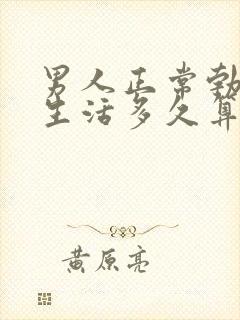 男人正常勃
生活多久算
黄原亮